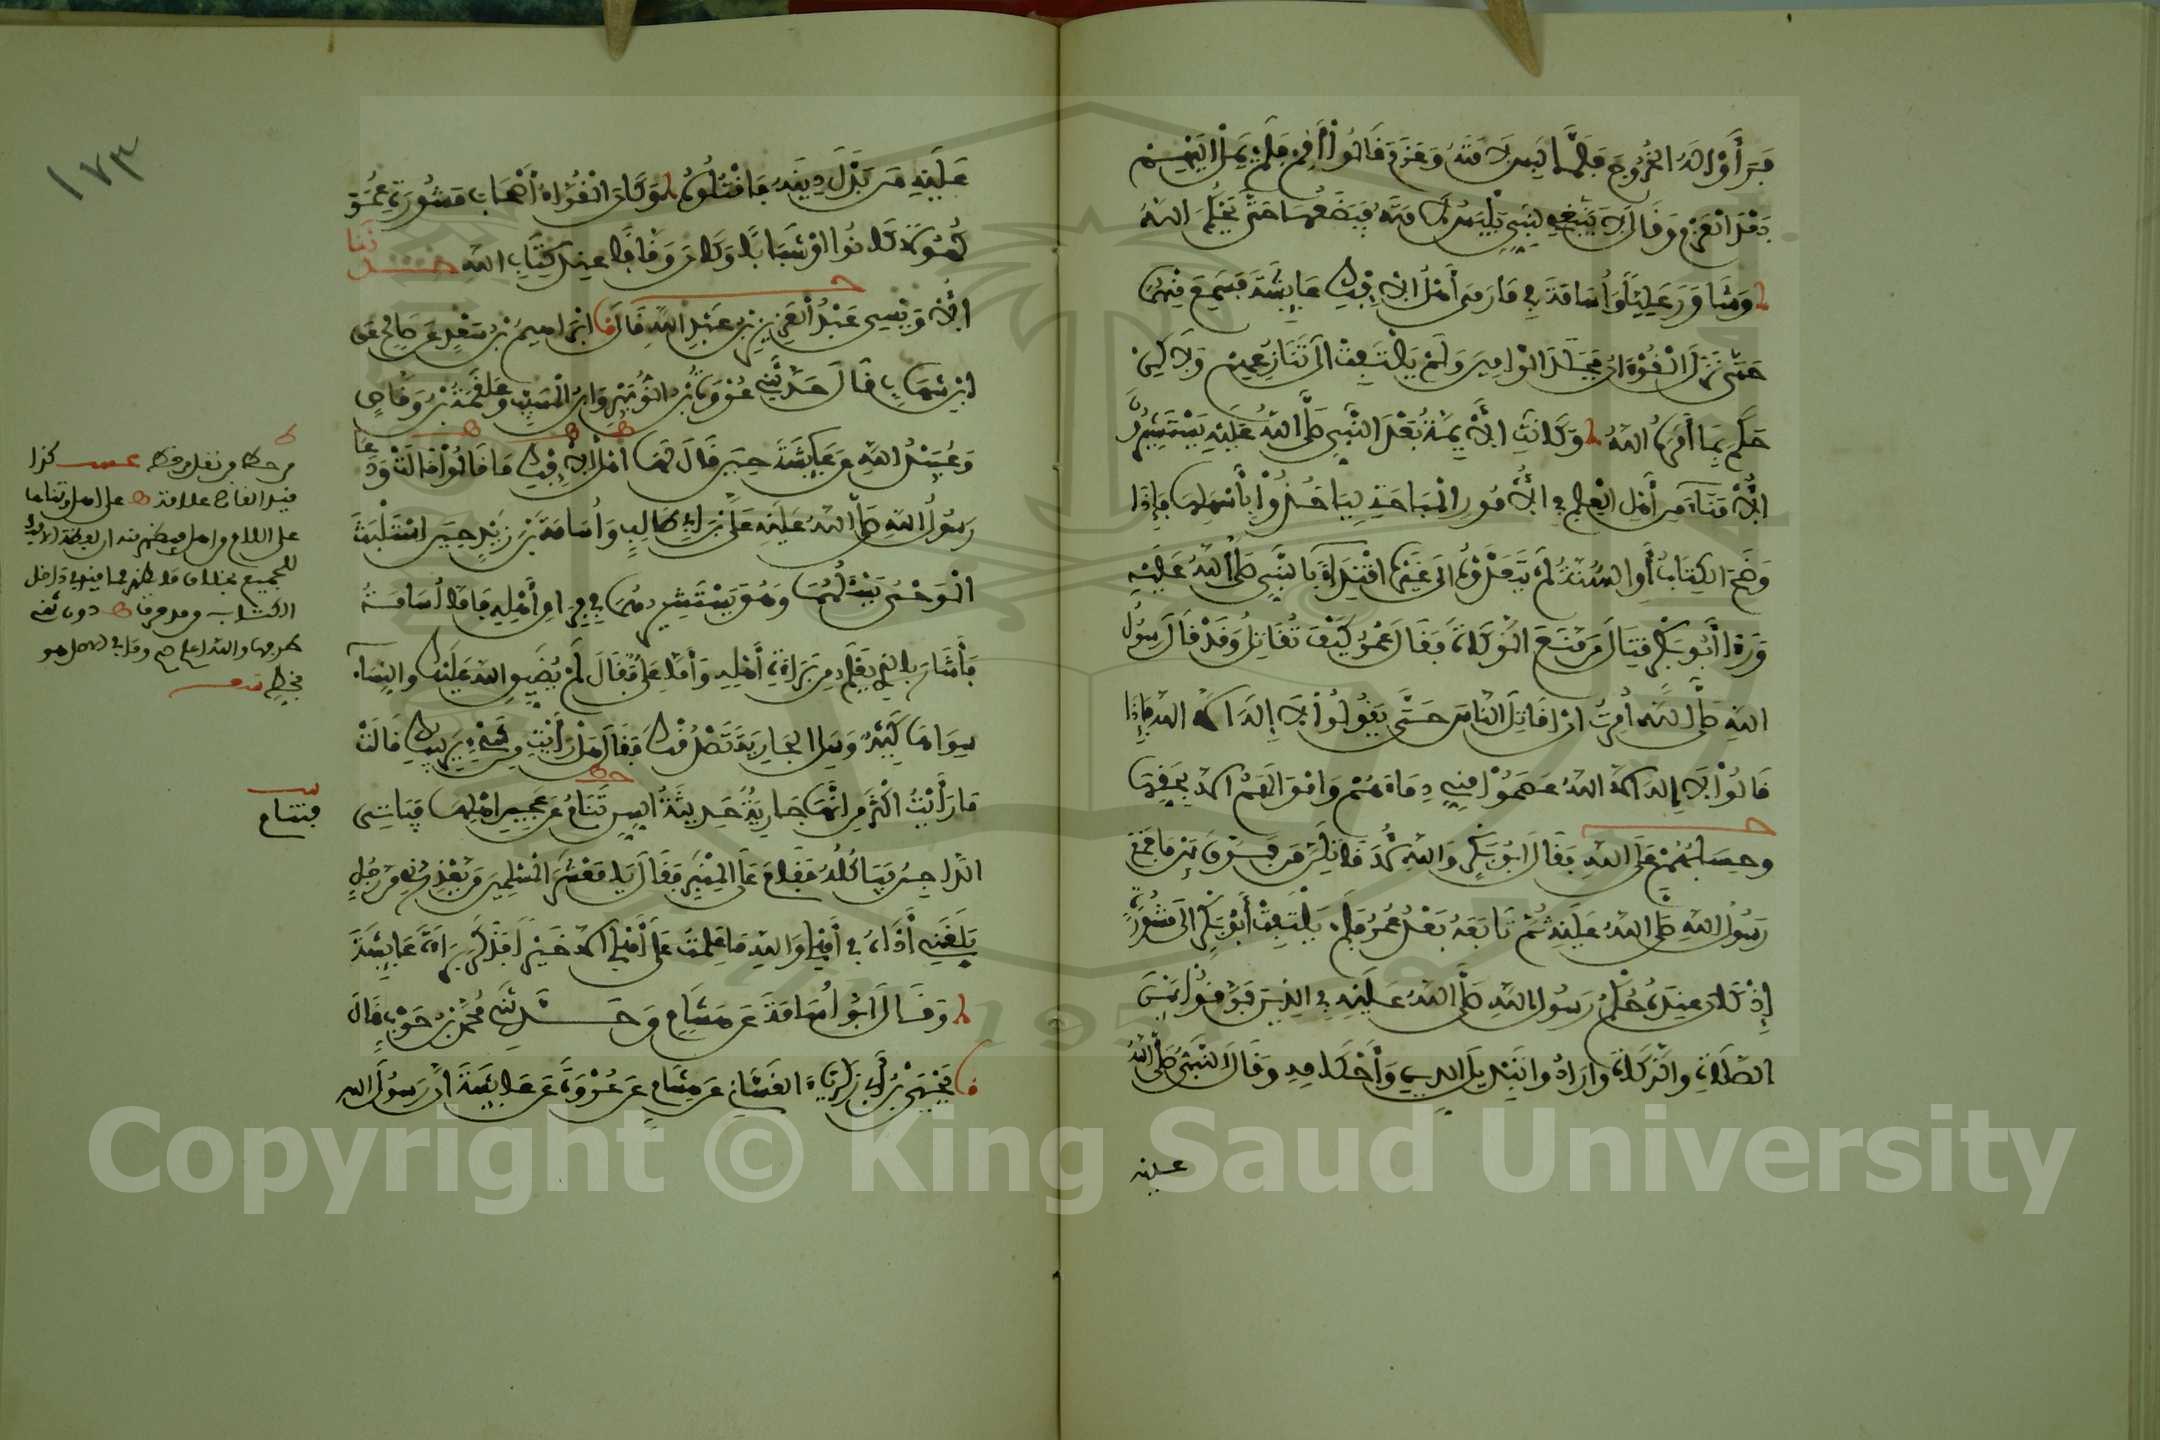 فَرَأَوْا لَهُ الخُرُوجَ فَلَمَّا لَبِسَ لَأْمَتَهُ وَعَزَمَ قَالُوا أَقِمْ فَلَمْ يَمِلْ إلَيْهِمْ
بَعْدَ الْعَزْمِ وَقَالَ لَا يَنْبَغِي لِنَبِيٍّ يَلْبَسُ لَأْمَتَهُ فَيَضَعُهَا حَتَّى يَحْكُمَ اللهُ
وَشَاوَرَ عَلِيًّا وَأُسَامَةَ فِي مَا رَمَى أَهْلُ الْإِفْكِ عَائِشَةَ فَسَمِعَ مِنْهُمَا
حَتَّى نَزَلَ الْقُرْءَانُ فَجَلَدَ الرَّامِينَ وَلَمْ يَلْتَفِتْ إلَى تَنَازُعِهِمْ وَلَكِنْ
حَكَمَ بِمَا أَمَرَهُ اللهُ وَكَانَتِ الْأَئِمَّةُ بَعْدَ النَّبِيِّ صَلَّى اللهُ عَلَيْهِ يَسْتَشِيرُونَ
الْأُمَنَاءَ مِنْ أَهْلِ الْعِلْمِ فِي الْأُمُورِ الْمُبَاحَةِ لِيَأْخُذُوا بِأَسْهَلِهَا فَإِذَا
وَضَحَ الكِتَابُ أَوِ السُّنَّةُ لَمْ يَتَعَدَّوْهُ إلَى غَيْرِهِ اقْتِدَاءً بِالنَّبِيِّ صَلَّى اللهُ عَلَيْهِ
وَرَأَى أَبُو بَكْرٍ قِتَالَ مَنْ مَنَعَ الزَّكَاةَ فَقَالَ عُمَرُ كَيْفَ تُقَاتِلُ وَقَدْ قَالَ رَسُولُ
اللهِ صَلَّى اللهُ أُمِرْتُ أَنْ أُقَاتِلَ النَّاسَ حَتَّى يَقُولُوا لَا إِلَهَ إلَّا اللهُ فَإِذَا
قَالُوا لَا إِلَهَ إلَّا اللهُ عَصَمُوا مِنِّي دِمَاءَهُمْ وَأَمْوَالَهُمْ إلَّا بِحَقِّهَا
وَحِسَابُهُمْ عَلَى اللهِ فَقَالَ أَبُو بَكْرٍ وَاللهِ لَأُقَاتِلَنَّ مَنْ فَرَّقَ بَيْنَ مَا جَمَعَ
رَسُولُ اللهِ صَلَّى اللهُ عَلَيْهِ ثُمَّ تَابَعَهُ بَعْدُ عُمَرُ فَلَمْ يَلْتَفِتْ أَبُو بَكْرٍ إلَى مَشُورَةٍ
إِذْ كَانَ عِنْدَهُ حُكْمُ رَسُولِ اللهِ صَلَّى اللهُ عَلَيْهِ فِي الَّذِينَ فَرَّقُوا بَيْنَ
الصَّلَاةِ وَالزَّكَاةِ وَأَرَادُوا تَبْدِيلَ الدِّينِ وَأَحْكَامِهِ وَقَالَ النَّبِيُّ صَلَّى اللهُ
عليه
١٧٣
عَلَيْهِ مَنْ بَدَّلَ دِينَهُ فَاقْتُلُوهُ وَكَانَ الْقُرَّاءُ أَصْحَابَ مَشُورَةِ عُمَرَ
كُهُولًا كَانُوا أَوْ شَبَابًا وَكَانَ وَقَّافًا عِنْدَ كِتَابِ اللهِ حدثنا
الْأُوَيْسِي عَبْدُ الْعَزِيزِ بْنُ عَبْدِ اللهِ قَالَ نا إِبْرَاهِيمُ بْنُ سَعْدٍ عَنْ صَالِحٍ عَنِ
ابْنِ شِهَابٍ قَالَ حَدَّثَنِي عُرْوَةُ بْنُ الزُّبَيْرِ وَابْنُ الْمُسَيِّبِ وَعَلْقَمَةُ بْنُ وَقَّاصٍ
وَعُبَيْدُ اللهِ عَنْ عَائِشَةَ حِينَ قَالَ لَهَا أَهْلُ الْإِفْكِ مَا قَالُوا قَالَتْ وَدَعَا
رَسُولُ اللهِ صَلَّى اللهُ عَلَيْهِ عَلِيَّ بْنَ أَبِي طَالِبٍ وَأُسَامَةَ بْنَ زَيْدٍ حِينَ اسْتَلْبَثَ
الْوَحْيُ يَسْأَلُهُمَا وَهُوَ يَسْتَشِيرُهُمَا فِي فِرَاقِ أَهْلِهِ فَأَمَّا أُسَامَةُ
فَأَشَارَ بِالَّذِي يَعْلَمُ مِنْ بَرَاءَةِ أَهْلِهِ وَأَمَّا عَلِيٌّ فَقَالَ لَمْ يُضَيِّقِ اللهُ عَلَيْكَ وَالنِّسَاءُ
سِوَاهَا كَثِيرٌ وَسَلِ الجَارِيَةَ تَصْدُقْكَ فَقَالَ هَلْ رَأَيْتِ مِنْ شَيْءٍ يَرِيبُكِ قَالَتْ
مَا رَأَيْتُ أَكْثَرَ مِنْ أَنَّهَا جَارِيَةٌ حَدِيثَةُ السِّنِّ تَنَامُ عَنْ عَجِينِ أَهْلِهَا فَيَأْتِي
الدَّاجِنُ فَيَأْكُلُهُ فَقَامَ عَلَى الْمِنْبَرِ فَقَالَ يَا مَعْشَرَ الْمُسْلِمِينَ مَنْ يَعْذِرُنِي مِنْ رَجُلٍ
بَلَغَنِي أَذَاهُ فِي أَهْلِي وَاللهِ مَا عَلِمْتُ عَلَى أَهْلِي إلَّا خَيْرًا فَذَكَرَ بَرَاءَةَ عَائِشَةَ
وَقَالَ أَبُو أُسَامَةَ عَنْ هِشَامٍ وَحَدَّثَنِي مُحَمَّدُ بْنُ حَرْبٍ قَالَ
نا يَحْيَى بْنُ أَبِي زَكَرِيَّاءَ الغَسَّانِي عَنْ هِشَامٍ عَنْ عُرْوَةَ عَنْ عَائِشَةَ أَنَّ رَسُولَ اللهِ
فتنام
Copyright © King Saud University